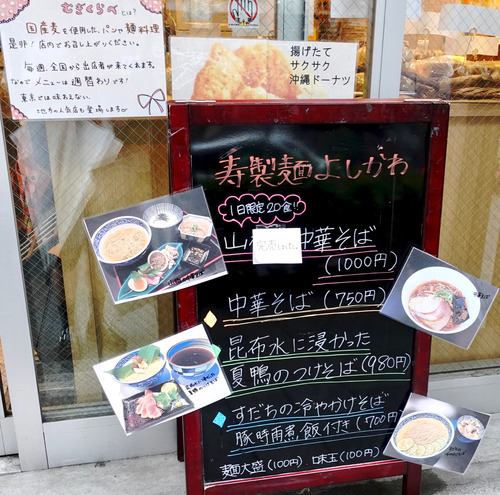 むぎくらべ とは?
国産麦を使用した、パンや麺料理
是非!店内でお召し上がりください。
毎週、全国から出店者が来てくれます。
なので メニューは週替わりです!
東京では味わえない、
地方の人気店も登場しますよ
揚げたて
サクサク
沖縄ドーナツ
寿製麺よしかわ
1日限定20食!!
中華そば
(1000円)
中華そば (750円)
昆布水に浸かった
夏鴨のつけそば(980円)
すだちの冷やかけそば
豚時雨煮飯付き(700円)
麺大盛(100円) 味玉(100円)